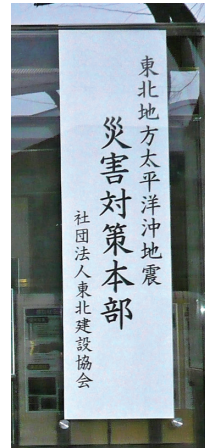 東北地方太平洋沖地震
災害対策本部
社団法人東北建設協会